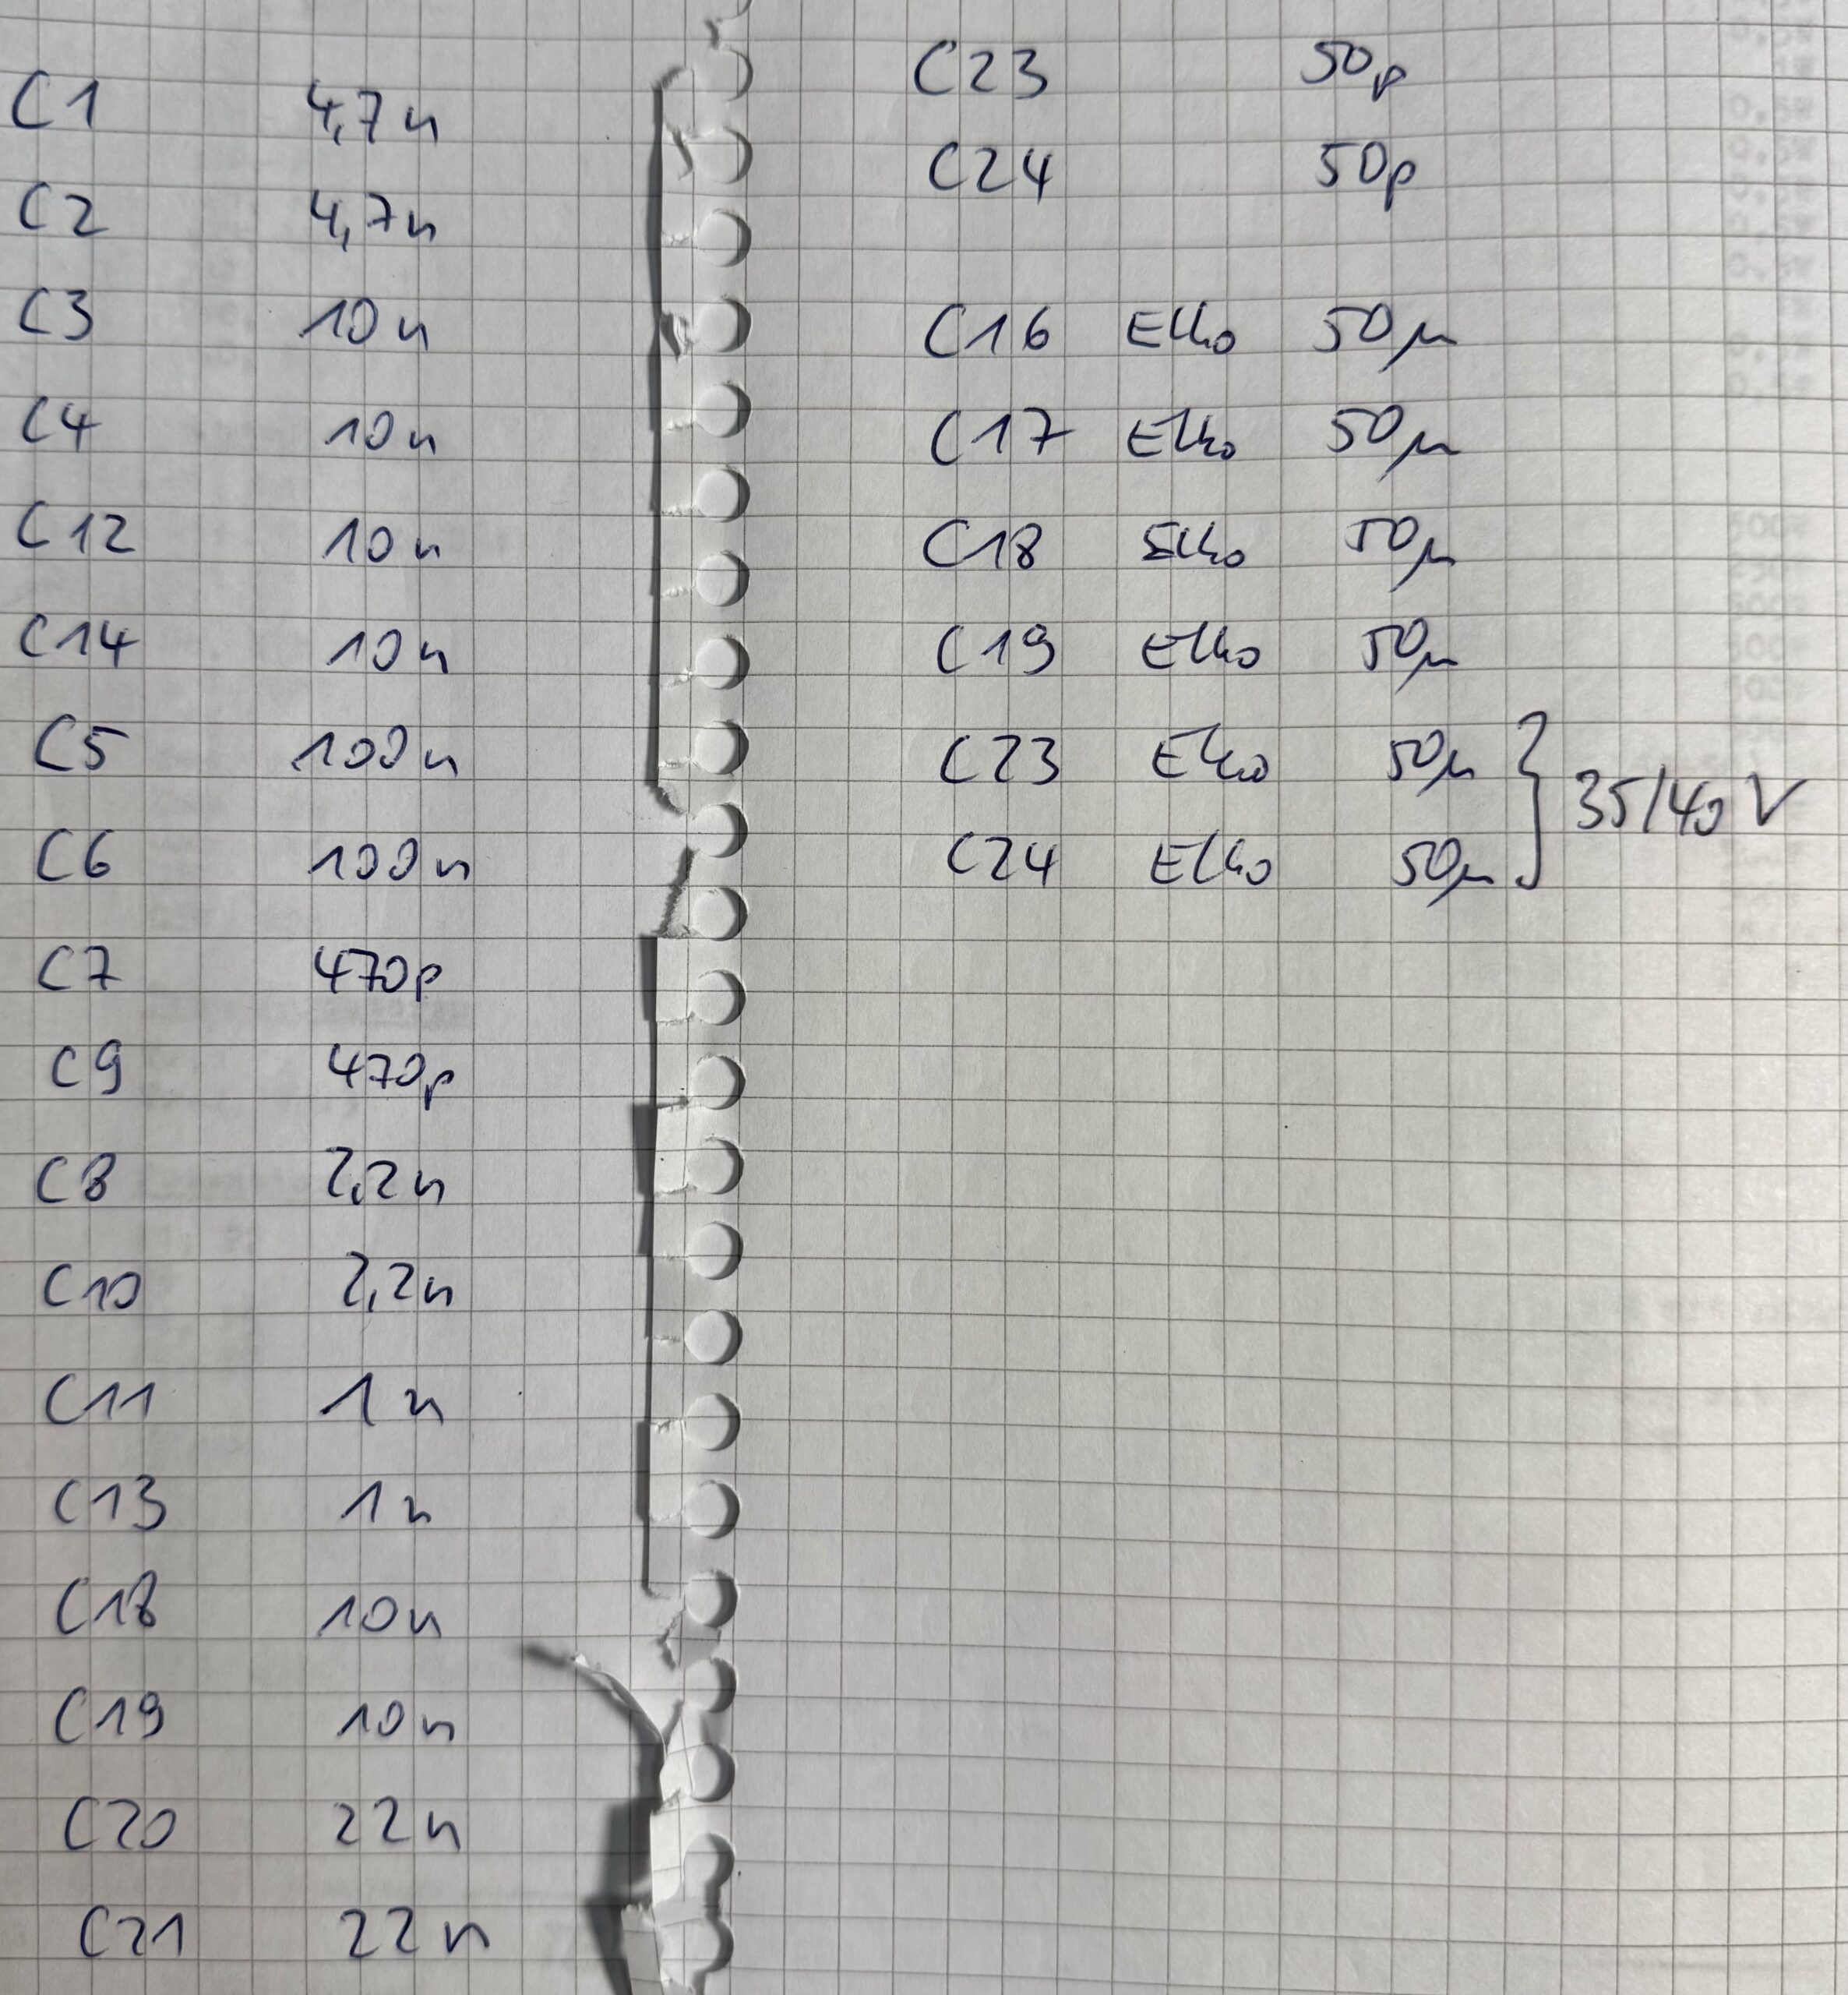 C1 4,7n
C2 4,7n
C3 10n
C4 10n
C12 10n
C14 10n
C5 100n
C6 100n
C7 470p
C9 470p
C8 2,2n
C10 2,2n
C11 1n
C13 1n
C18 10n
C19 10n
C20 22n
C21 22n
C23 50p
C24 50p
C16 Elko 50µ
C17 Elko 50µ
C18 Elko 50µ
C19 Elko 50µ
C23 Elko 50µ
C24 Elko 50µ
35/40 V